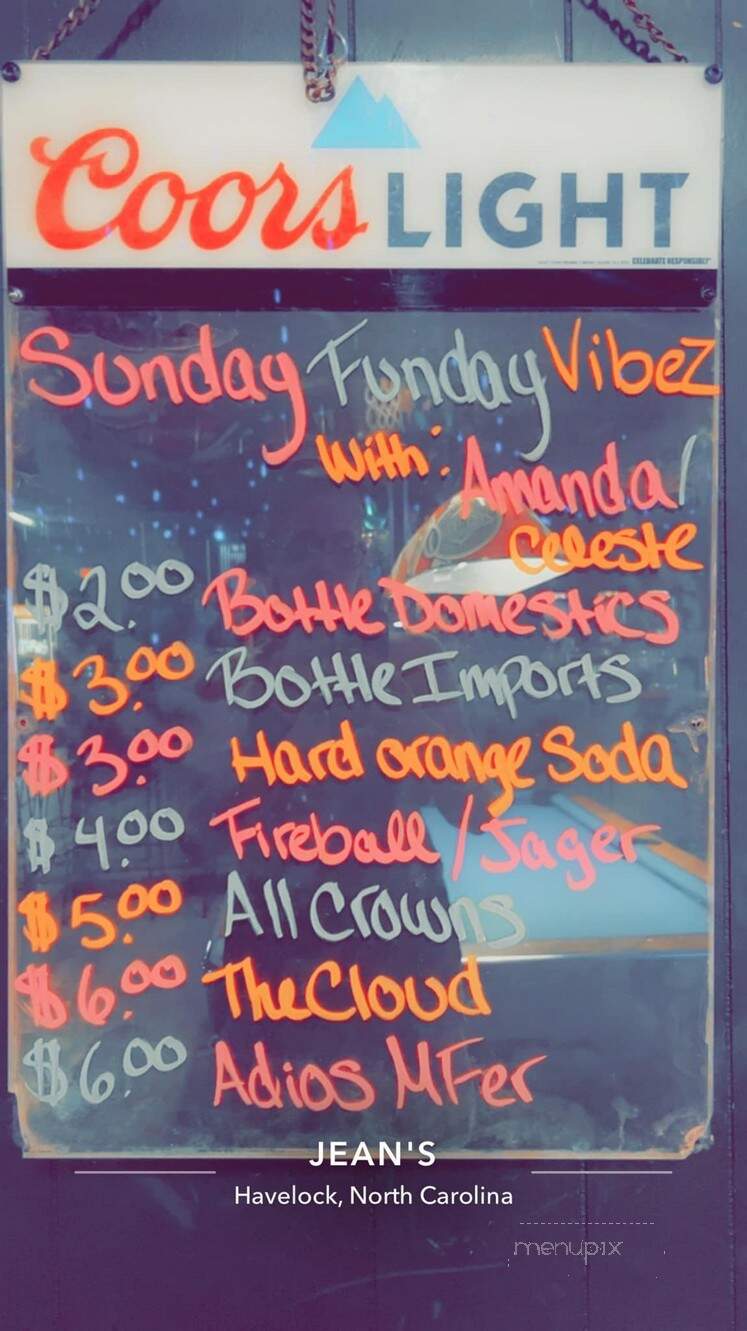 Coors LIGHT
CELEBRATE RESPONSIBLY
Sunday Funday VibeZ
With: Amanda/
Celeste
$2.00 Bottle Domestics
$3.00 Bottle Imports
$3.00 Hard orange Soda
$4.00 Fireball / Jager
$5.00 All Crowns
$6.00 The Cloud
$6.00 Adios MFer
JEAN'S
Havelock, North Carolina
menupix